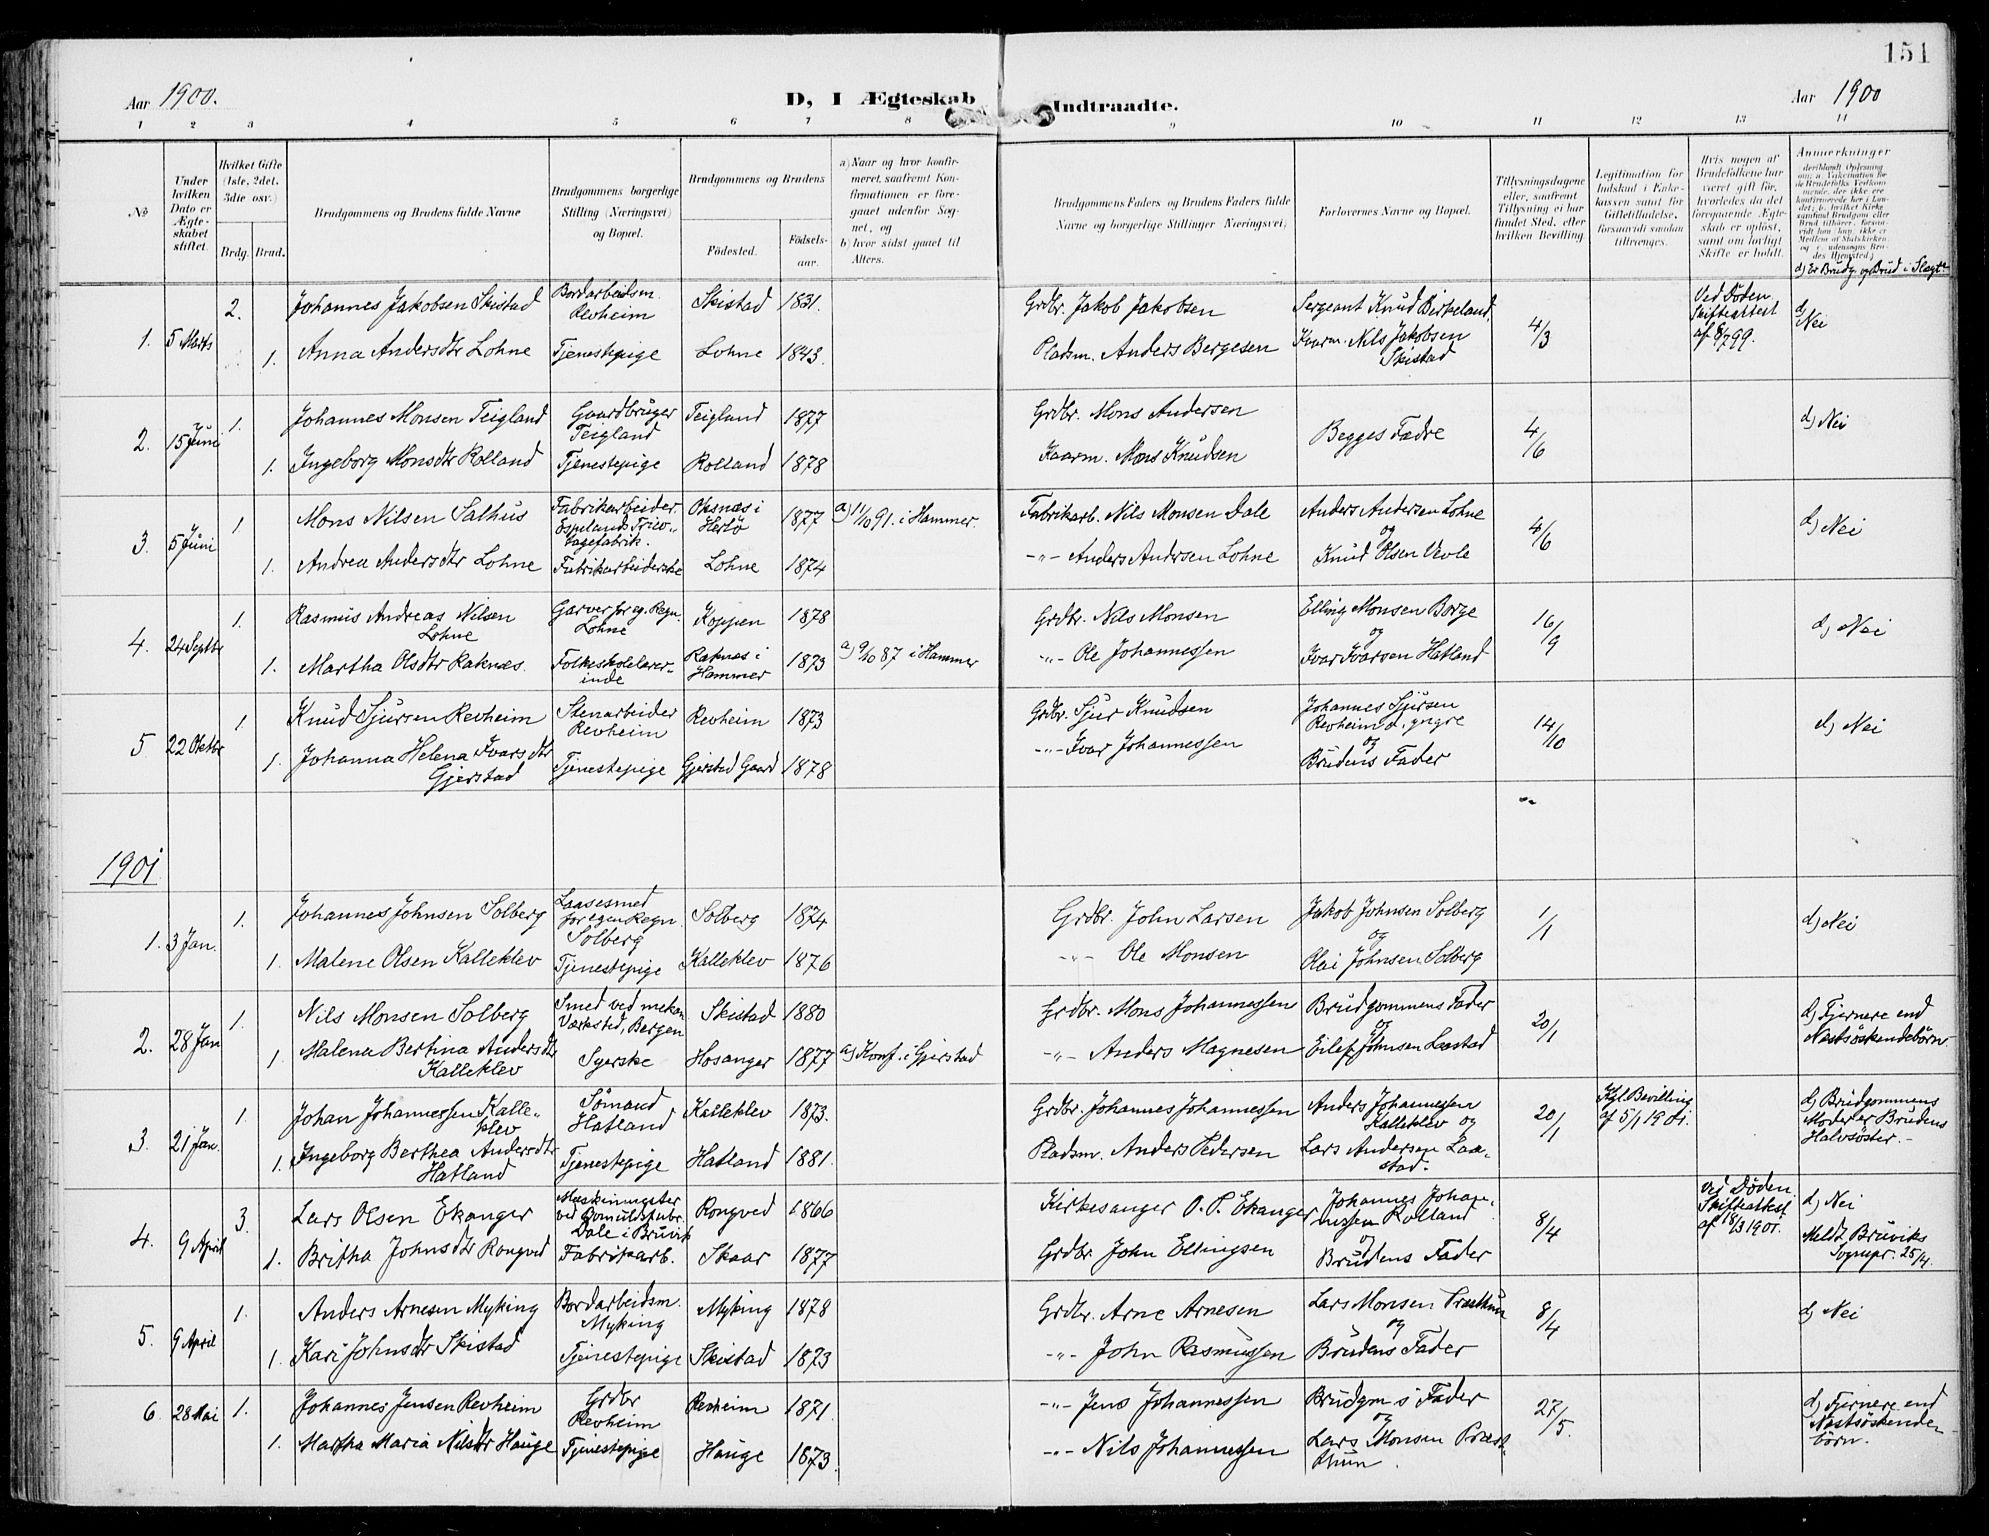 151
Aar 1900.
D, I Ægteskab Indtraadte.
Aar 1900
1 2 3 4 5 6 7 8 9 10 11 12 13 14
No
Under hvilken Dato er Ægteskabet stiftet.
Hvilket Gifte (1ste, 2det, 3die osv.)
Brdg. Brud.
Brudgommens og Brudens fulde Navne
Brudgommens borgerlige Stilling (Næringsvei) og Bopæl.
Brudgommens og Brudens
Fødested. Fødselsaar.
a) Naar og hvor konfirmeret, saafremt Konfirmationen er foregaaet udenfor Sognet, og
b) hvor sidst gaaet til Alters.
Brudgommens Faders og Brudens Faders fulde Navne og borgerlige Stillinger Næringsvei)
Forlovernes Navne og Bopæl.
Tillysningsdagene eller, saafremt Tillysning ei har fundet Sted, efter hvilken Bevilling
Legitimation for Indskud i Enkekassen samt for Giftetilladelse, forsaavidt saadan tiltrænges.
Hvis nogen af Brudefolkene har været gift før, hvorledes da det foregaaende Ægteskab er opløst, samt om lovligt Skifte er holdt.
Anmerkninger
d) Er Brudg. og Brud i Slægt?
1. 5 Marts 2. Johannes Jakobsen Skistad Bordarbeidsm. Revheim Skistad 1831. Grdbr. Jakob Jakobsen Sergeant Knud Birkeland, 4/3 Ved Døden Skifteattest af 8/7 99. d) Nei
1. Anna Andersdtr Lohne Tjenestepige Lohne 1843. Pladsm. Anders Bergesen Kaarm. Nils Jakobsen Skistad
2. 15 Juni 1. Johannes Monsen Teigland Gaardbruger Teigland Teigland 1877 Grdbr. Mons Andersen Begges Fædre 4/6 d) Nei
1. Ingeborg Monsdtr Rolland Tjenestepige Rolland 1878 Kaarm. Mons Knudsen
3. 5 Juni 1. Mons Nilsen Salhus Fabrikarbeider. Espelands Tricotagefabrik. Oksnæs i Herlø 1877 a) 11/10 91. i Hammer. Fabrikarb. Nils Monsen Dale Anders Andersen Lohne og 4/6 d) Nei
1. Andrea Andersdtr Lohne Fabrikarbeiderske Lohne 1874 -"- Anders Andersen Lohne Knud Olsen Vevle
4. 24 Septbr 1. Rasmus Andreas Nilsen Lohne Garver for eg. Regn. Lohne Koppen 1878 Grdbr. Nils Monsen Elling Monsen Borge og 16/9 d) Nei
1. Martha Olsdtr Raknæs. Folkeskolelærerinde Raknæs i Hammer 1873 a) 9/10 87 i Hammer -"- Ole Johannessen Ivar Ivarsen Hatland
5 22 Oktbr 1 Knud Sjursen Revheim Stenarbeider Revheim Revheim 1873 Grdbr. Sjur Knudsen Johannes Sjursen Revheim d. yngre og 14/10 d) Nei
1. Johanna Helena Ivarsdtr Gjerstad Tjenestepige Gjerstad Gaard 1878 -"- Ivar Johannessen Brudens Fader
1901
1. 3 Jan. 1. Johannes Johnsen Solberg Laasesmed for egen Regn. Solberg Solberg 1874 Grdbr. John Larsen Jakob Johnsen Solberg og 1/1 d) Nei
1. Malene Olsen Kalleklev Tjenestepige Kalleklev 1876 -"- Ole Monsen Olai Johnsen Solberg
2. 28 Jan 1. Nils Monsen Solberg Smed ved mekan Værksted, Bergen Skistad 1880 Grdbr. Mons Johannessen Brudgommens Fader og 20/1 d) Fjernere end Næstsøskendebørn.
1 Malena Bertina Andersdtr Kalleklev Syerske Hosanger 1877 a) Konf. i Gjerstad -"- Anders Magnesen Eilef Johnsen Laastad
3. 21 Jan. 1. Johan Johannessen Kalleklev Sømand Hatland Kalleklev 1873. Grdbr. Johannes Johannessen Anders Johannessen Kalleklev og 20/1 Kgl. Bevilling af 5/1 1901. d) Brudgommens Moder er Brudens Halvsøster. -
1. Ingeborg Berthea Andersdtr Hatland Tjenestepige Hatland 1881. Pladsm. Anders Pedersen Lars Andersen Laastad.
4. 9 April 3. Lars Olsen Ekanger Maskinmester ved Bomuldsfabr. Dale i Bruvik Rongved 1866 Kirkesanger O. P. Ekanger Johannes Johannessen Rolland og 8/4 Ved Døden. Skifteattest af 18/3 1901. d) Nei Meldt Bruviks Sognepr. 25/4.
1. Britha Johnsdtr Rongved Fabrikarb. Skaar 1877 Grdbr. John Ellingsen Brudens Fader
5. 9 April 1. Anders Arnesen Myking Bordarbeidsm. Myking Myking 1878 Grdbr. Arne Arnesen Lars Monsen Præsthun og 8/4 d) Nei
1. Kari Johnsdtr Skistad Tjenestepige Skistad 1873 -"- John Rasmussen Brudens Fader
6 28 Mai 1. Johannes Jensen Revheim Grdbr Revheim Revheim 1871. -"- Jens Johannessen Brudgm's Fader og 27/5. d) Fjernere end Næstsøskendebørn.
1. Martha Maria Nilsdtr Hauge Tjenestepige Hauge 1873. -"- Nils Johannessen Lars Monsen Præsthun.